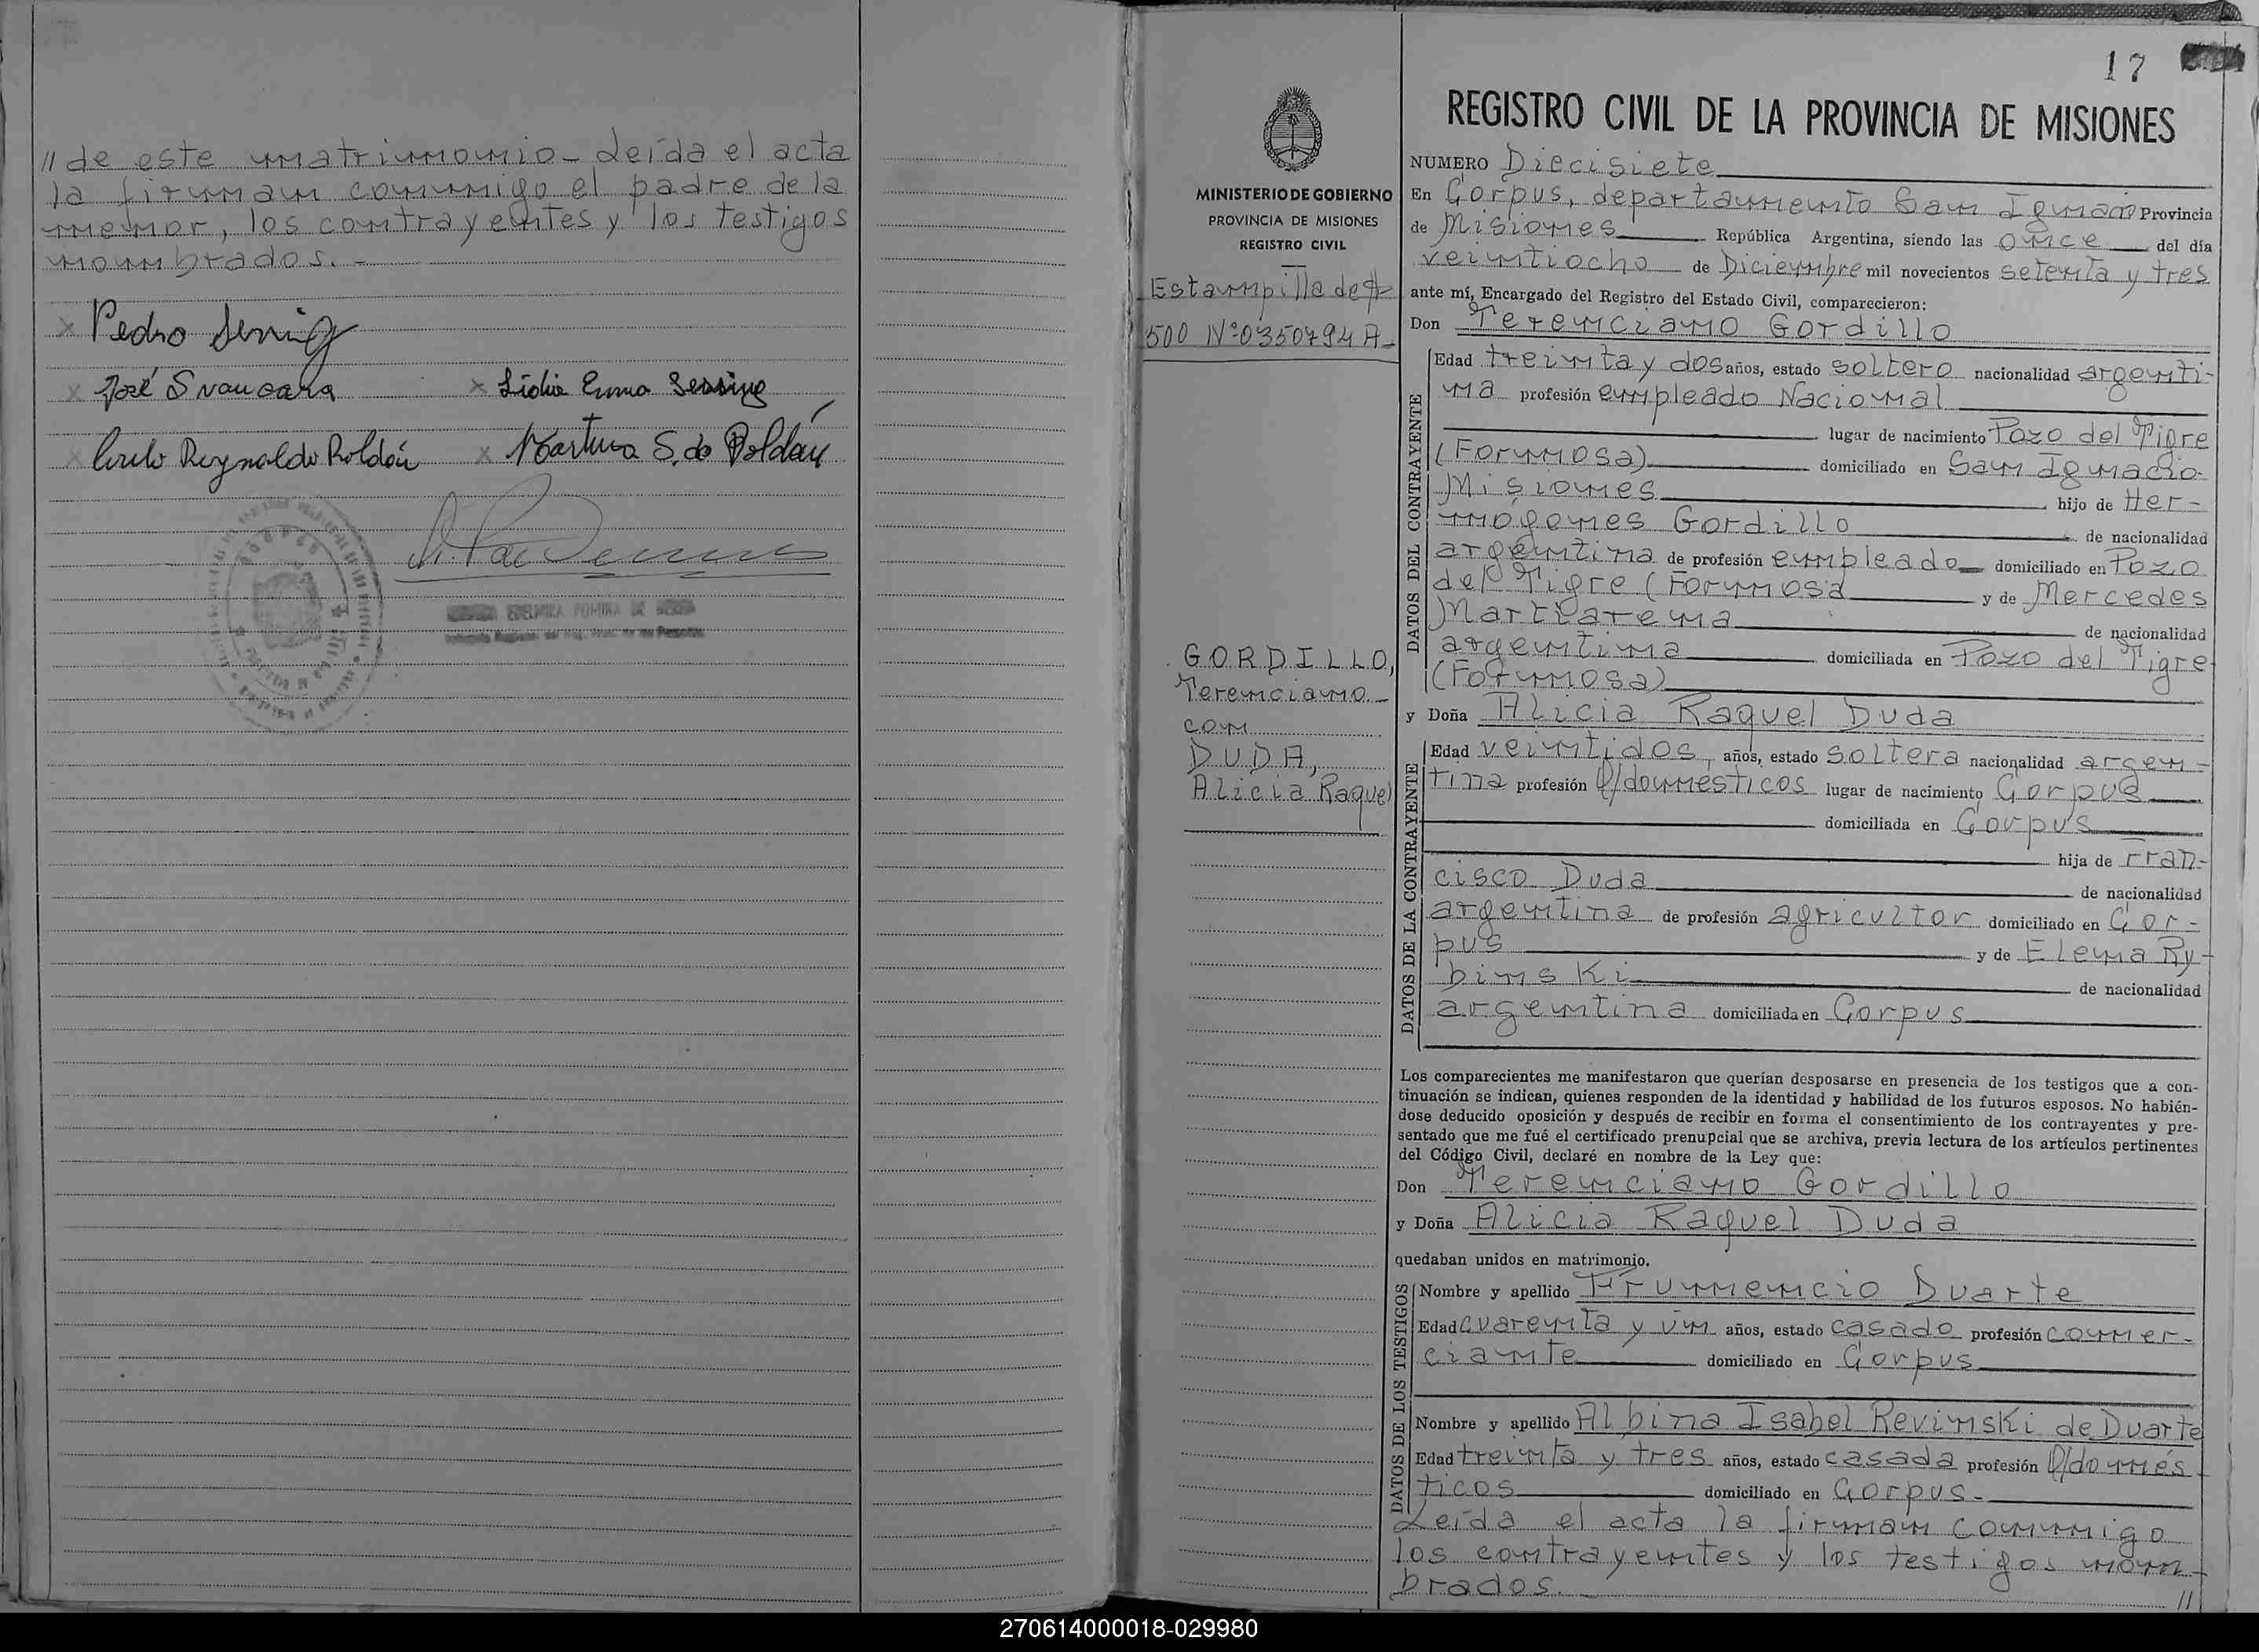 // de este matrimonio - Leída el acta
la firman conmigo el padre de la
menor, los contrayentes y los testigos
nombrados. -
x Pedro
x José x Lidia Emma
x Reynaldo Roldán x Martina S. de Roldán
EDELMIRA
17
REGISTRO CIVIL DE LA PROVINCIA DE MISIONES
MINISTERIO DE GOBIERNO
PROVINCIA DE MISIONES
REGISTRO CIVIL
Estampilla de $
500 Nº 0350794 A-
GORDILLO,
Terenciano
con
DUDA,
Alicia Raquel
NUMERO Diecisiete
En Corpus, departamento San Ignacio Provincia
de Misiones República Argentina, siendo las once del día
veintiocho de Diciembre mil novecientos setenta y tres
ante mí, Encargado del Registro del Estado Civil, comparecieron:
Don Terenciano Gordillo
DATOS DEL CONTRAYENTE
Edad treinta y dos años, estado soltero nacionalidad argenti-
na profesión empleado Nacional
lugar de nacimiento Pozo del Tigre
(Formosa) domiciliado en San Ignacio
Misiones hijo de Her-
mógenes Gordillo de nacionalidad
argentina de profesión empleado domiciliado en Pozo
del Tigre (Formosa y de Mercedes
Martiarena de nacionalidad
argentina domiciliada en Pozo del Tigre
(Formosa)
y Doña Alicia Raquel Duda
DATOS DE LA CONTRAYENTE
Edad veintidos, años, estado soltera nacionalidad argen-
tina profesión q/domésticos lugar de nacimiento Corpus
domiciliada en Corpus
hija de Fran-
cisco Duda de nacionalidad
argentina de profesión agricultor domiciliado en Cor-
pus y de Elena Ry-
binski de nacionalidad
argentina domiciliada en Corpus
Los comparecientes me manifestaron que querían desposarse en presencia de los testigos que a con-
tinuación se indican, quienes responden de la identidad y habilidad de los futuros esposos. No habién-
dose deducido oposición y después de recibir en forma el consentimiento de los contrayentes y pre-
sentado que me fué el certificado prenupcial que se archiva, previa lectura de los artículos pertinentes
del Código Civil, declaré en nombre de la Ley que:
Don Terenciano Gordillo
y Doña Alicia Raquel Duda
quedaban unidos en matrimonio.
DATOS DE LOS TESTIGOS
Nombre y apellido Frumencio Duarte
Edad cuarenta y un años, estado casado profesión comer-
ciante domiciliado en Corpus
Nombre y apellido Albina Isabel Revinski de Duarte
Edad treinta y tres años, estado casada profesión q/domés-
ticos domiciliado en Corpus-
Leída el acta la firman conmigo
los contrayentes y los testigos nom-
brados.
//
270614000018-029980